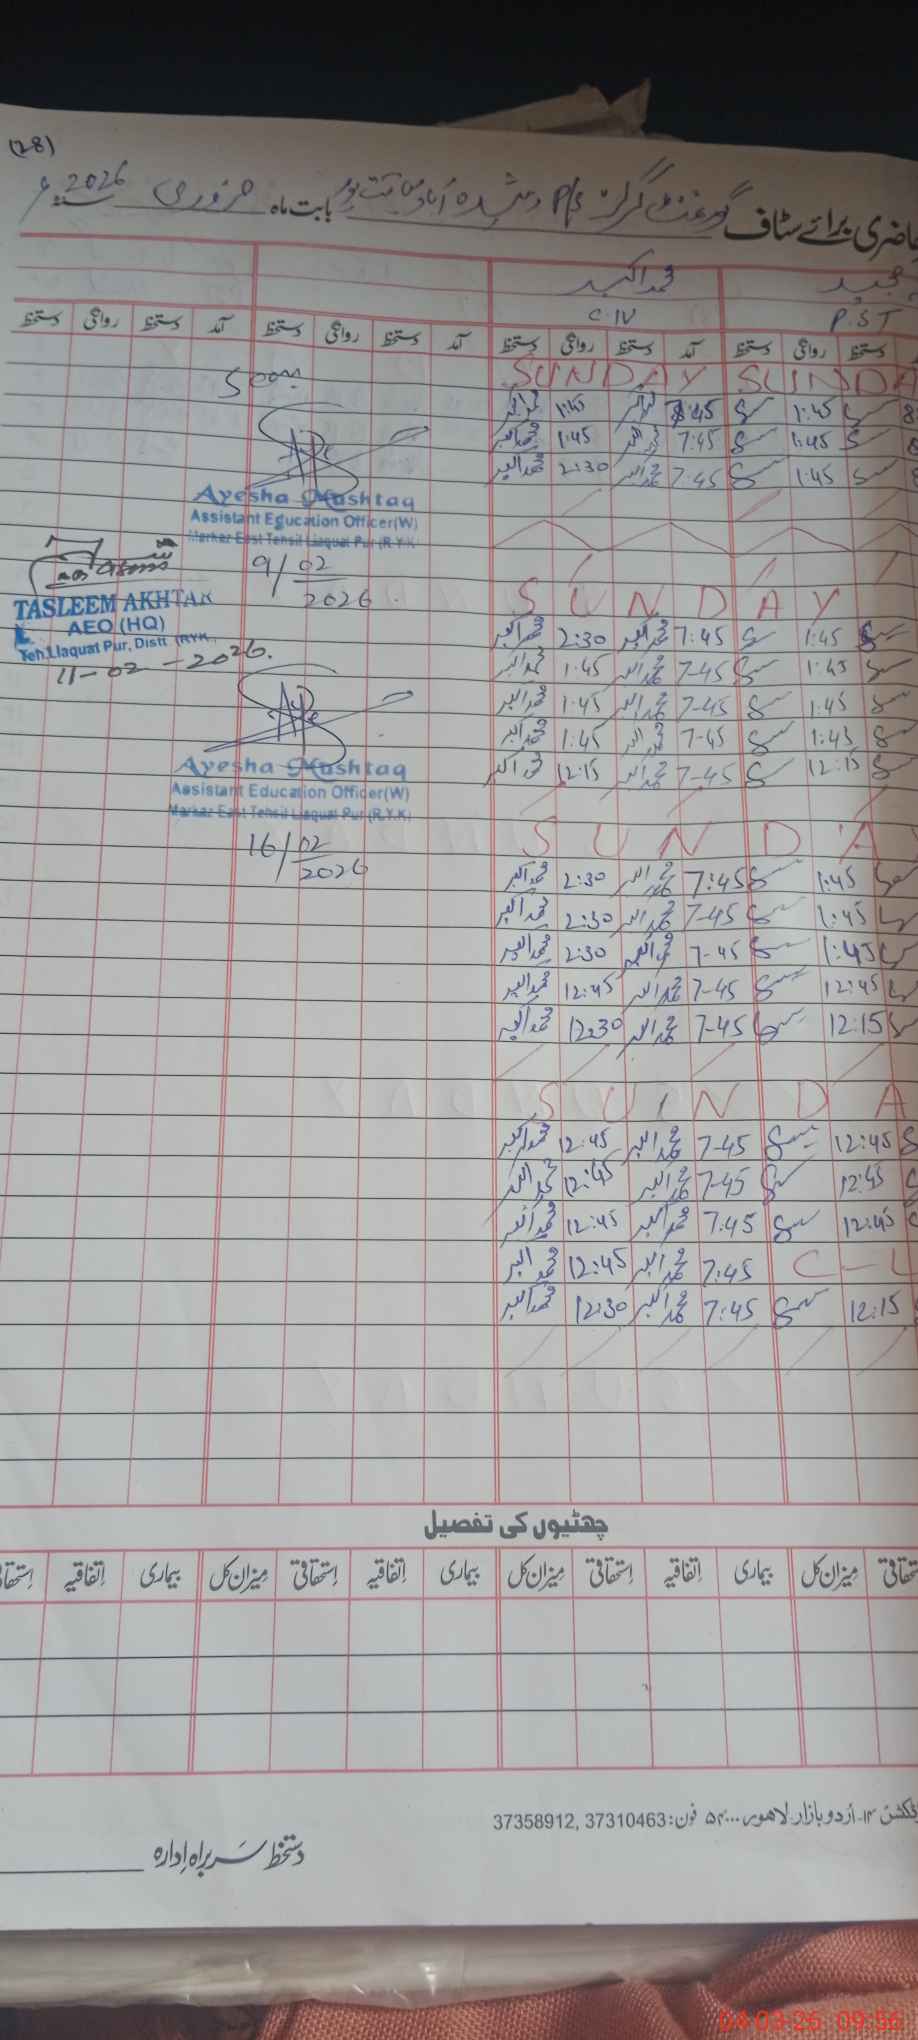 (28)
حاضری برائے سٹاف گورنمنٹ گرلز P/S بابت ماہ فروری سنہ 2026ء
مجید محمد اکبر
P.ST C.IV
دستخط روانگی دستخط آمد دستخط روانگی دستخط آمد دستخط روانگی دستخط آمد دستخط روانگی دستخط
SUNDAY SUNDA
1:45 8:45 محمد اکبر 1:45 محمد اکبر
1:45 7:45 محمد اکبر 1:45 محمد اکبر
1:45 7:45 محمد اکبر 2:30 محمد اکبر
Ayesha Mushtaq
Assistant Education Officer(W)
Markaz East Tehsil Liaquat Pur (R.Y.K)
9/02
2026
TASLEEM AKHTAR
AEO (HQ)
Teh. Liaquat Pur, Distt (RYK
11-02-2026.
SUNDAY
1:45 7:45 محمد اکبر 2:30 محمد اکبر
1:45 7-45 محمد اکبر 1:45 محمد اکبر
1:45 7-45 محمد اکبر 1:45 محمد اکبر
1:45 7-45 محمد اکبر 1:45 محمد اکبر
12:15 7-45 محمد اکبر 12:15 محمد اکبر
Ayesha Mushtaq
Assistant Education Officer(W)
Markaz East Tehsil Liaquat Pur (R.Y.K)
16/02
2026
SUNDA
1:45 7:45 محمد اکبر 2:30 محمد اکبر
1:45 7-45 محمد اکبر 2:30 محمد اکبر
1:45 7-45 محمد اکبر 2:30 محمد اکبر
12:45 7-45 محمد اکبر 12:45 محمد اکبر
12:15 7-45 محمد اکبر 12:30 محمد اکبر
SUNDA
12:45 7-45 محمد اکبر 12:45 محمد اکبر
12:45 7-45 محمد اکبر 12:45 محمد اکبر
12:45 7:45 محمد اکبر 12:45 محمد اکبر
C-L 7:45 محمد اکبر 12:45 محمد اکبر
12:15 7:45 محمد اکبر 12:30 محمد اکبر
چھٹیوں کی تفصیل
استحقاقی میزان کل بیماری اتفاقیہ استحقاقی میزان کل بیماری اتفاقیہ استحقاقی میزان کل بیماری اتفاقیہ استحقاقی
اردو بازار لاہور۔ ۵۴۰۰۰ فون: 37310463, 37358912
دستخط سربراہ ادارہ
04-03-26 09:56